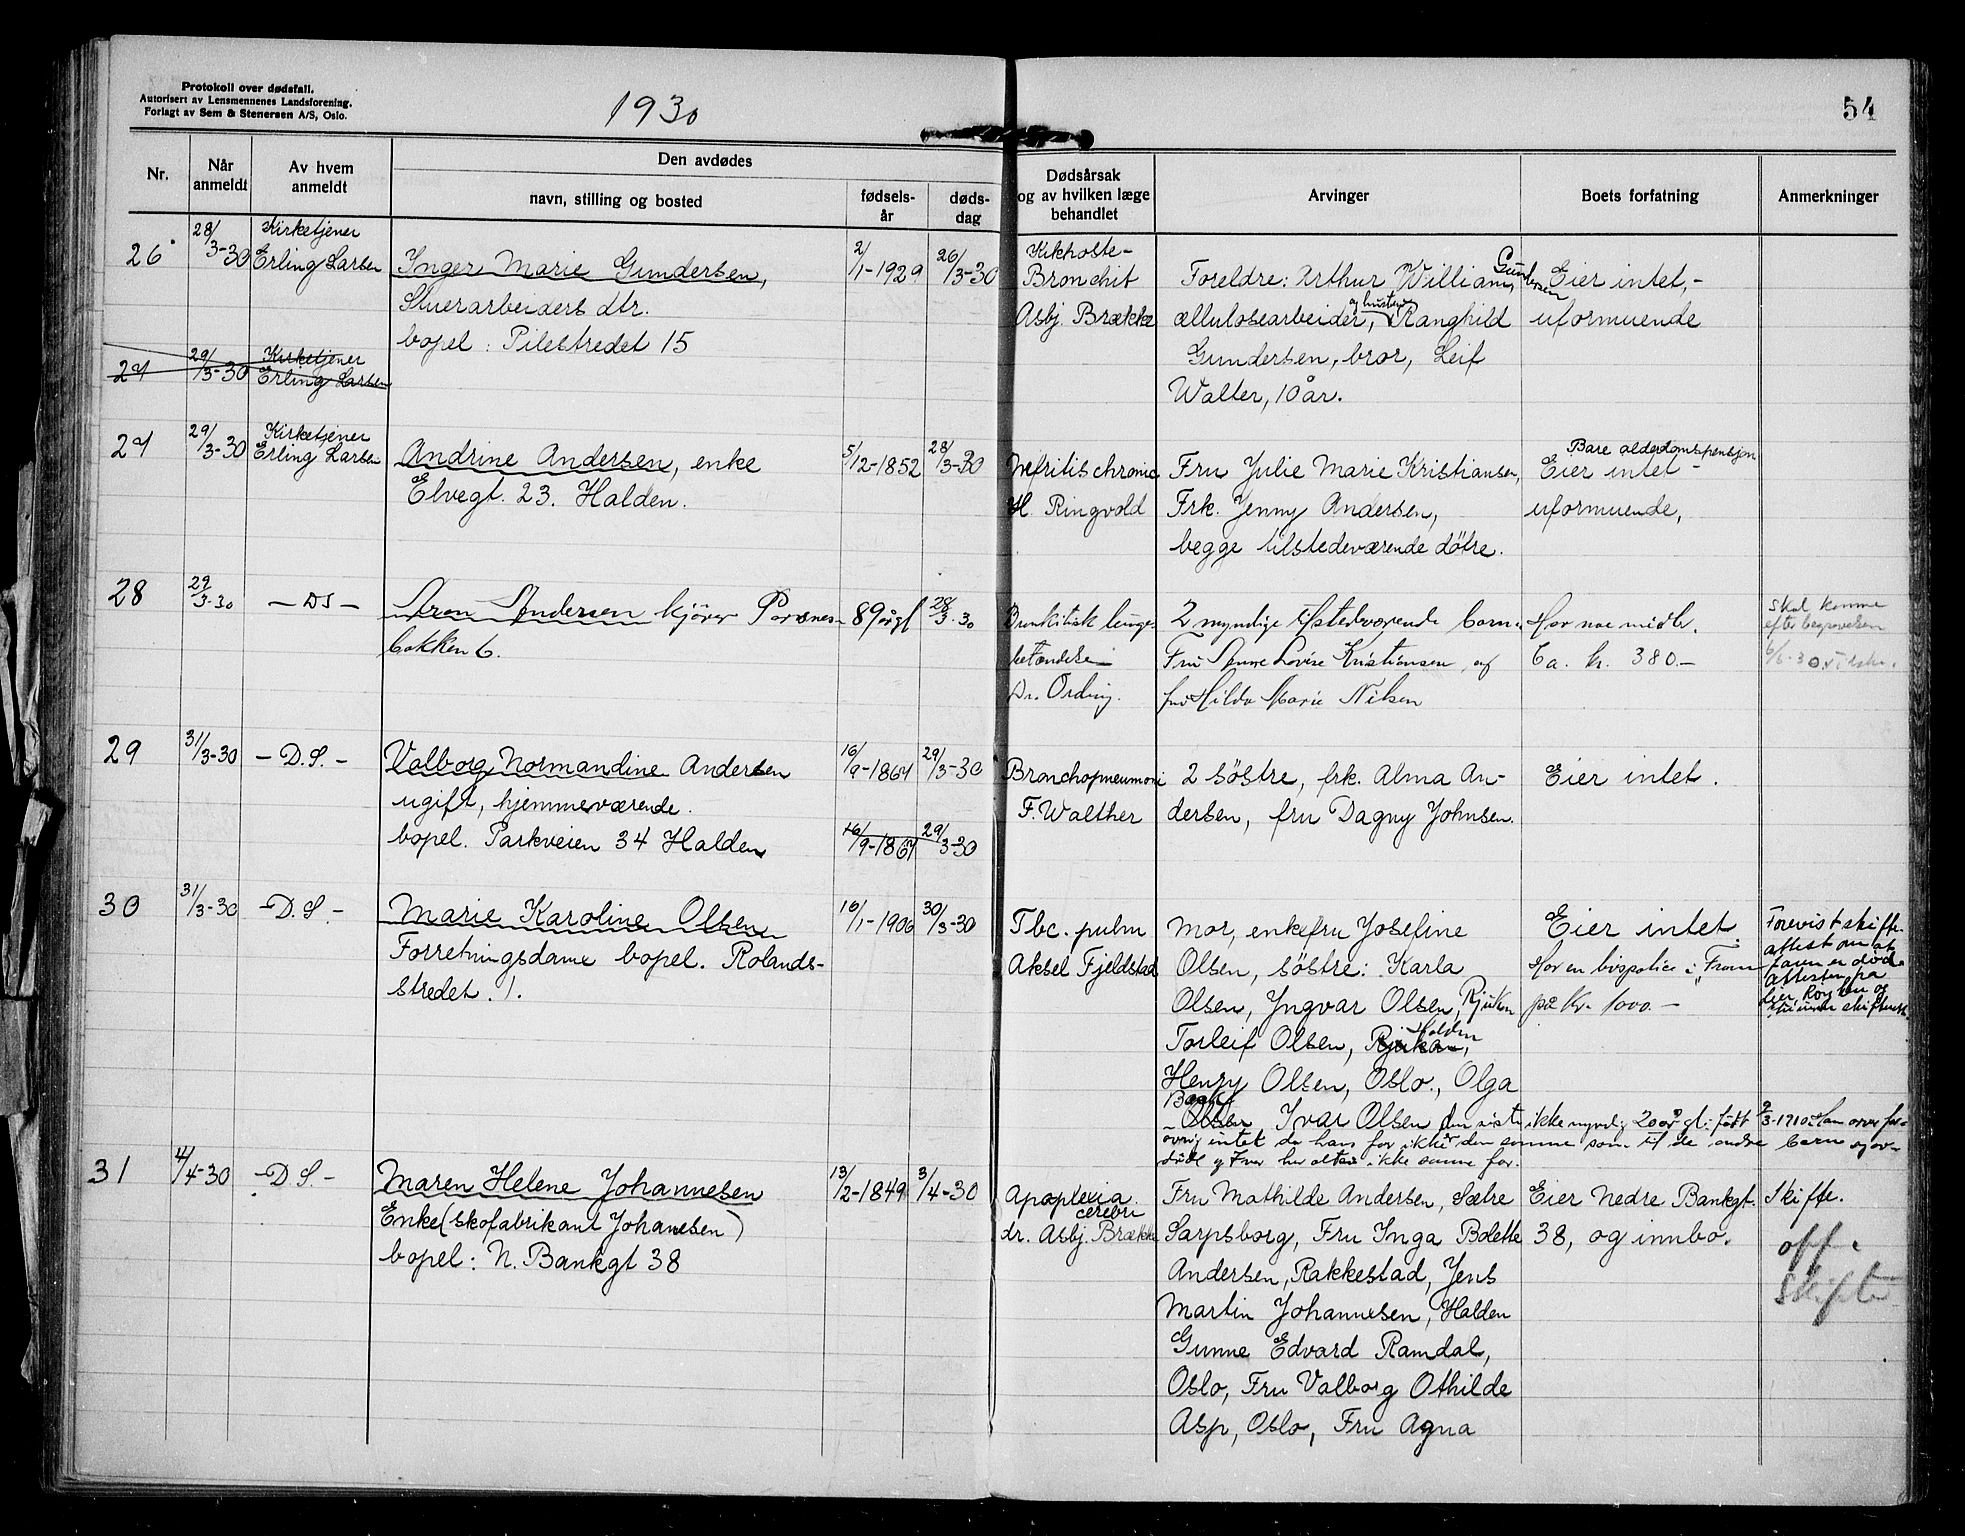 Protokoll over dødsfall.
Autorisert av Lensmennenes Landsforening.
Forlagt av Sem & Stenersen A/S, Oslo.
1930
54
Nr.
Når anmeldt
Av hvem anmeldt
Den avdødes
navn, stilling og bosted
fødsels-år
døds-dag
Dødsårsak og av hvilken læge behandlet
Arvinger
Boets forfatning
Anmerkninger
26
28/3-30
Kirketjener
Erling Larsen
Inger Marie Gundersen,
Stuerarbeiders dtr.
bopel: Pilestredet 15
2/1-1929
26/3-30
Kikhoste-
Bronchit
Asbj. Brække
Foreldre: Arthur William Gundersen
cellulosearbeider, og hustru Ranghild
Gundersen, bror, Leif
Walter, 10 år.
Eier intet,-
uformuende
27
29/3-30
Kirketjener
Erling Larsen
27
29/3-30
Kirketjener
Erling Larsen
Andrine Andersen, enke
Elvegt. 23. Halden.
5/12-1852
28/3-30
Nefritis chronic
H. Ringvold
Fru Julie Marie Kristiansen,
Frk. Jenny Andersen,
begge tilstedeværende døtre.
Bare alderdomspensjon
Eier intet-
uformuende,
28
29/3-30
- DS -
Aron Andersen kjører Porsnes-
bakken 6.
89 årgl
28/3-30
lunge-
betændelse
Dr. Ording.
2 myndige tilstedeværende barn
Fru Anne Lovise Kristiansen og
fru Hilda Marie Nilsen
Har noe midler.
Ca. kr. 380.-
Skal komme
efter begravelsen
29
31/3-30
- D.S. -
Valborg Normandine Andersen
ugift, hjemmeværende.
bopel. Parkveien 34 Halden
16/9-1867
29/3-30
16/9-1867
29/3-30
Bronchopneumoni
F. Walther
2 søstre, frk. Alma An-
dersen, fru Dagny Johnsen.
Eier intet.
30
31/3-30
- D.S. -
Marie Karoline Olsen
Forretningsdame bopel. Rolands-
stredet. 1.
16/1-1906
30/3-30
Tbc. pulm
Aksel Fjeldstad
Mor, enkefru Josefine
Olsen, søstre: Karla
Olsen, Yngvar Olsen, Rjukan
Torleif Olsen, Rjukan, Halden
Henry Olsen, Oslo., Olga
Olsen, Ivar Olsen den siste ikke myndig 20 år gl. født 9/3-1910. Han arver for-
øvrig intet da hans far ikke er den samme som til de andre barn og av-
døde og Ivar har altså ikke samme far.
Eier intet.
Har en livspolice i "Fram"
på Kr. 1000.-
Forevist skifte-
attest om at
faren er død
31
4/4-30
- D S. -
Maren Helene Johannesen
Enke (skofabrikant Johanesen)
bopel: N. Bankgt 38
13/2-1849
3/4-30
Apoplexia
cerebri
dr. Asbj. Brække
Fru Mathilde Andersen, Sætre
Sarpsborg, Fru Inga Bolette
Andersen, Rakkestad, Jens
Martin Johannesen, Halden
Gunne Edvard Ramdal,
Oslo, Fru Valborg Othilde
Asp, Oslo, Fru Agna
Eier Nedre Bankgt.
38, og innbo.
Skifte.
off.
Skifte